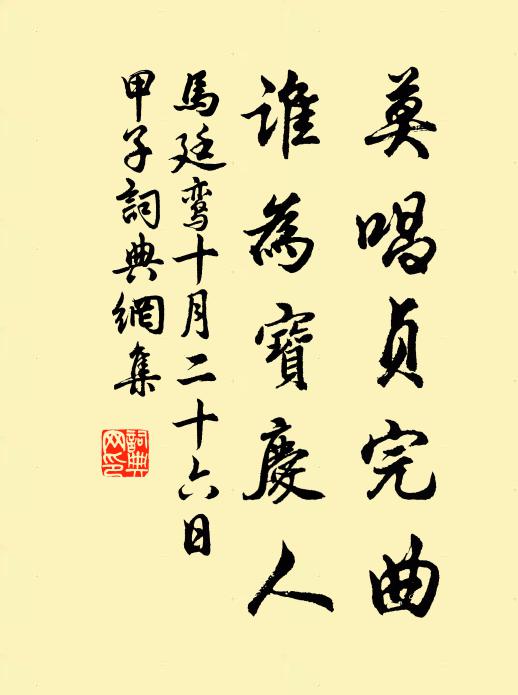 莫唱貞完曲
誰為寶慶人
馬廷鸞十月二十六日
甲子詞典網集
詞典
网印